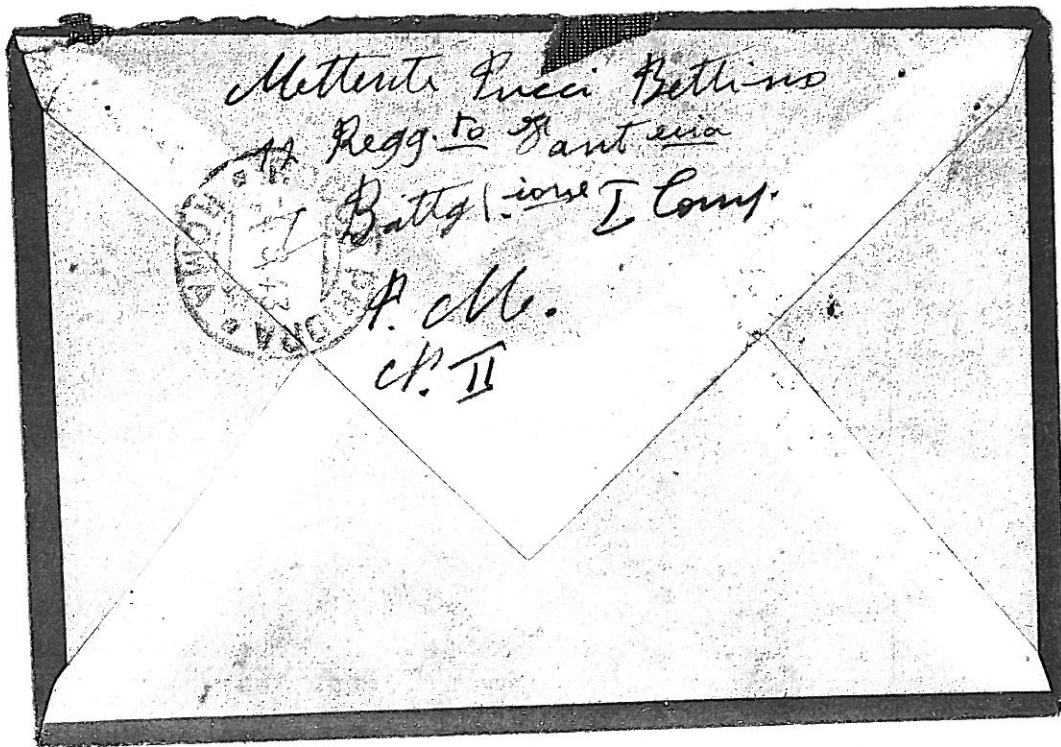 Mettente Pucci Bettino
11 Regg.to Fanteria
I Battgl.ione I Comp.
P. M.
N. II